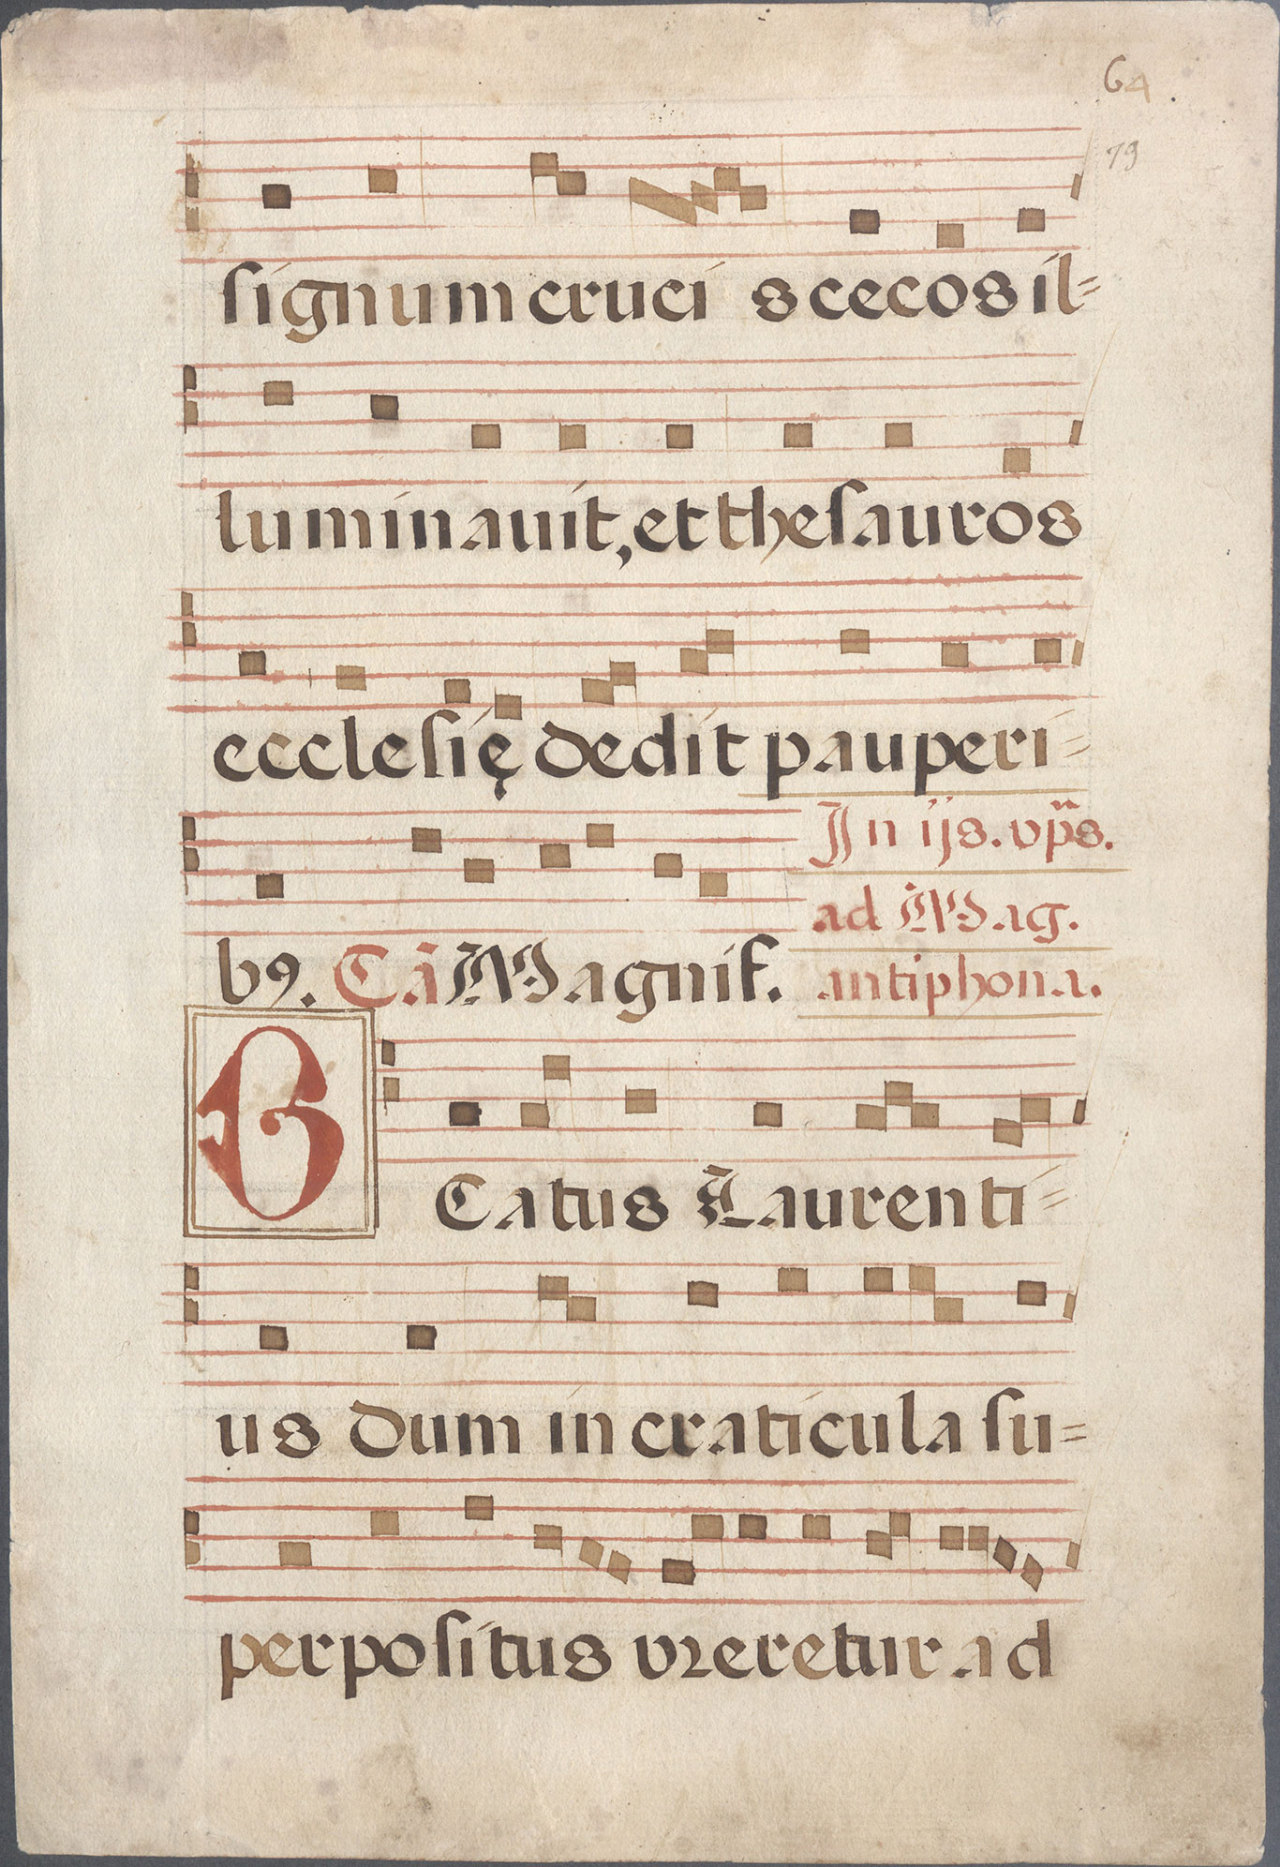 64
79
signum cruci s cecos il=
luminauit, et thesauros
ecclesię dedit pauperi=
b9. Cā Magnif.
In ijs. vp̄s.
ad Mag.
antiphona.
BEatus Laurenti=
us dum in craticula su=
perpositus vreretur ad